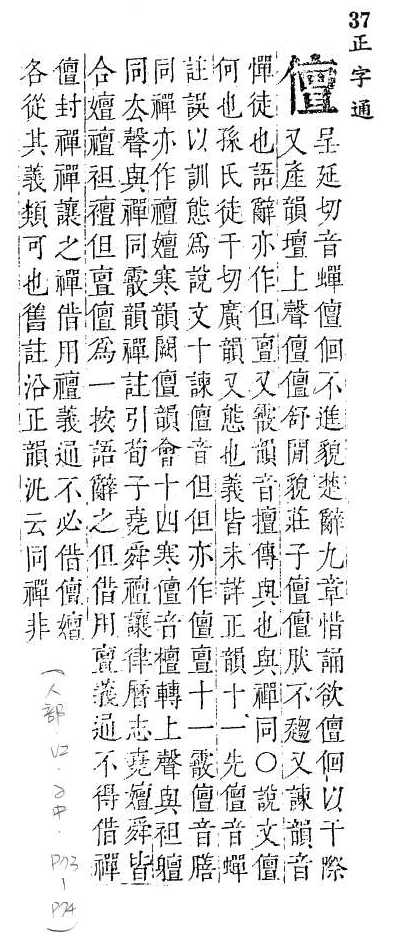 37正字通
儃
呈延切音蟬儃佪不進貌楚辭九章惜誦欲儃佪以干際
又產韻壇上聲儃儃舒閒貌莊子儃儃肰不趨又諫韻音
憚徒也語辭亦作但亶又霰韻音擅傳與也與禪同○說文儃
何也孫氏徒干切廣韻又態也義皆未詳正韻十一先儃音蟬
註誤以訓態爲說文十諫儃音但但亦作儃亶十一霰儃音膳
同禪亦作禮嬗寒韻闕儃韻會十四寒儃音檀轉上聲與袒䡀
同去聲與禪同霰韻禪註引荀子堯舜襢讓律曆志堯嬗舜皆
合嬗襢袒襢但亶儃爲一按語辭之但借用亶義通不得借禪
儃封禪禪讓之禪借用襢義通不必借儃嬗
各從其義類可也舊註沿正韻汎云同禪非
(人部·亿·子中·P73-P74)